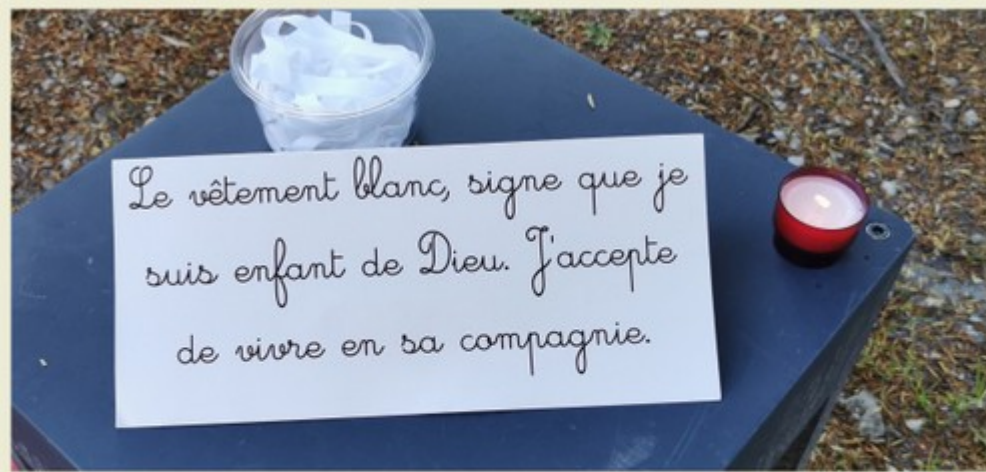 Le vêtement blanc, signe que je
suis enfant de Dieu. J'accepte
de vivre en sa compagnie.